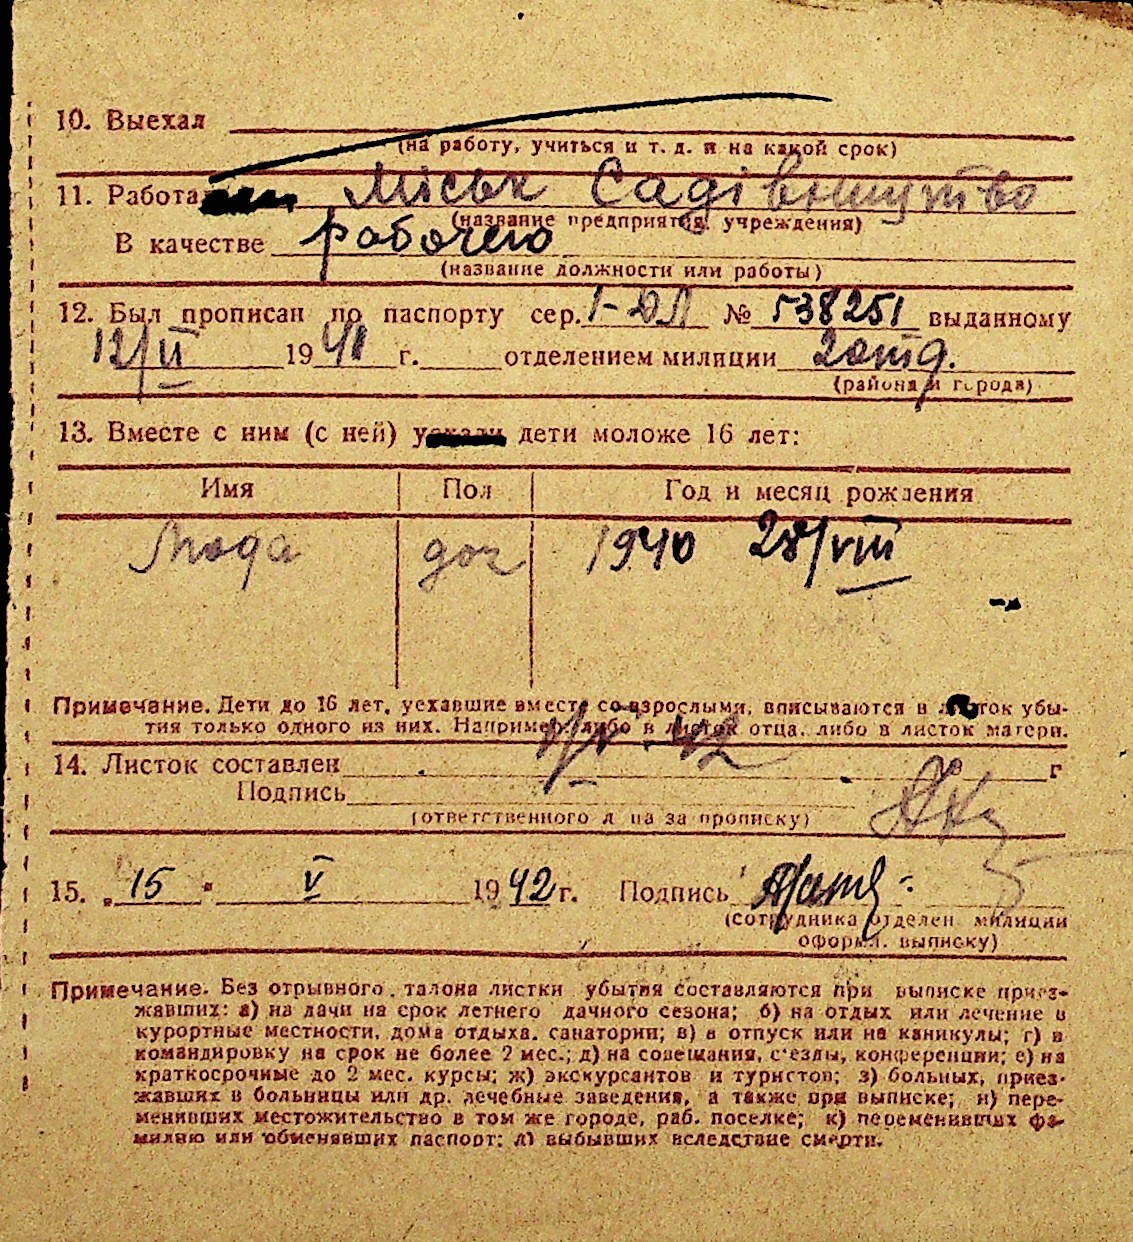 10. Выехал
(на работу, учиться и т. д. и на какой срок)
11. Работа Міськ Садівництво
(название предприятия, учреждения)
В качестве рабочего
(название должности или работы)
12. Был прописан по паспорту сер. 1-ДЛ № 538251 выданному
12/VI 1941 г. отделением милиции 2 отд.
(района и города)
13. Вместе с ним (с ней) дети моложе 16 лет:
Имя Пол Год и месяц рождения
доч 1940 28/VIII
Примечание. Дети до 16 лет, уехавшие вместе со взрослыми, вписываются в листок убы-
тия только одного из них. Например: либо в листок отца, либо в листок матери.
14. Листок составлен г
Подпись
(ответственного л ца за прописку)
15. „ 15 " V 1942 г. Подпись
(сотрудника отделен милиции
оформ. выписку)
Примечание. Без отрывного талона листки убытия составляются при выписке приез-
жавших: а) на дачи на срок летнего дачного сезона; б) на отдых или лечение в
курортные местности, дома отдыха, санатории; в) в отпуск или на каникулы; г) в
командировку на срок не более 2 мес.; д) на совещания, с'езды, конференции; е) на
краткосрочные до 2 мес. курсы; ж) экскурсантов и туристов; з) больных, приез-
жавших в больницы или др. лечебные заведения, а также при выписке; и) пере-
менивших местожительство в том же городе, раб. поселке; к) переменивших фа-
милию или обменявших паспорт; л) выбывших вследствие смерти.